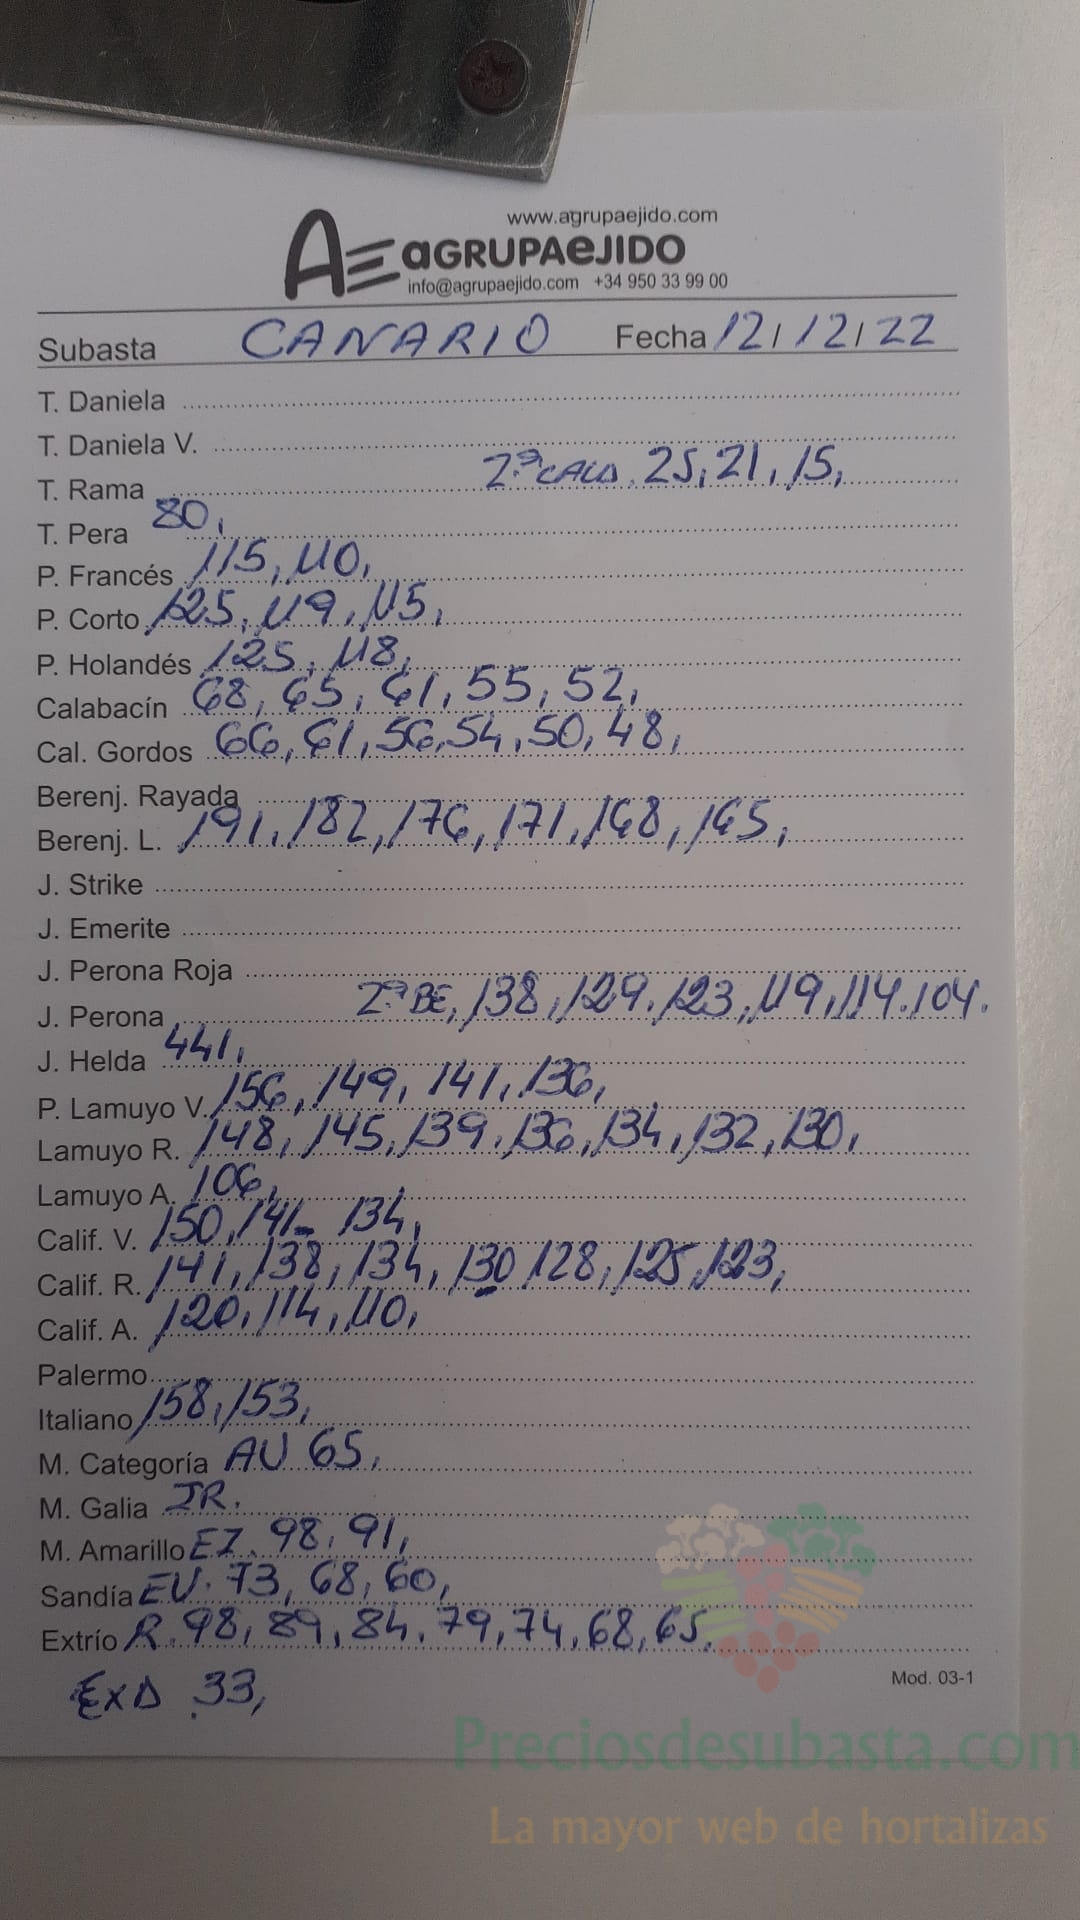 www.agrupaejido.com
AE aGRUPAeJIDO
info@agrupaejido.com +34 950 33 99 00
Subasta CANARIO Fecha 12/12/22
T. Daniela
T. Daniela V.
T. Rama 2ª CALA. 25, 21, 15,
T. Pera 80,
P. Francés 115, 110,
P. Corto 125, 119, 115,
P. Holandés 125, 118,
Calabacín 68, 65, 61, 55, 52,
Cal. Gordos 66, 61, 56, 54, 50, 48,
Berenj. Rayada
Berenj. L. 191, 182, 176, 171, 168, 165,
J. Strike
J. Emerite
J. Perona Roja
J. Perona 2ª BE, 138, 129. 123, 119, 114. 104.
J. Helda 441,
P. Lamuyo V. 156, 149, 141, 136,
Lamuyo R. 148, 145, 139. 136, 134, 132, 130,
Lamuyo A. 106,
Calif. V. 150, 141- 134,
Calif. R. 141, 138, 134, 130 128, 125, 123,
Calif. A. 120, 114, 110,
Palermo
Italiano 158, 153,
M. Categoría AU 65,
M. Galia JR.
M. Amarillo EZ. 98, 91,
Sandía EU. 73, 68, 60,
Extrío R. 98, 89, 84, 79, 74, 68, 65.
ExD 33,
Mod. 03-1
Preciosdesubasta.com
La mayor web de hortalizas